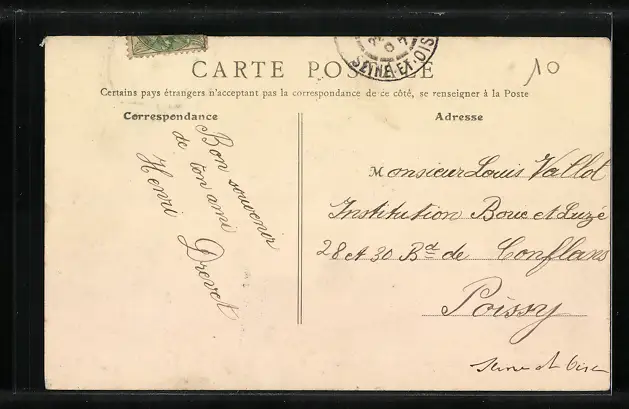 SEINE-ET-OIS
CARTE POSTALE
10
Certains pays étrangers n'acceptent pas la correspondance de ce côté, se renseigner à la Poste
Correspondance
Bon souvenir
de ton ami
Henri Drevet
Adresse
Monsieur Louis Vallot
Institution Bouc et Luzé
28 et 30 Bd de Conflans
Poissy
Seine et Oise